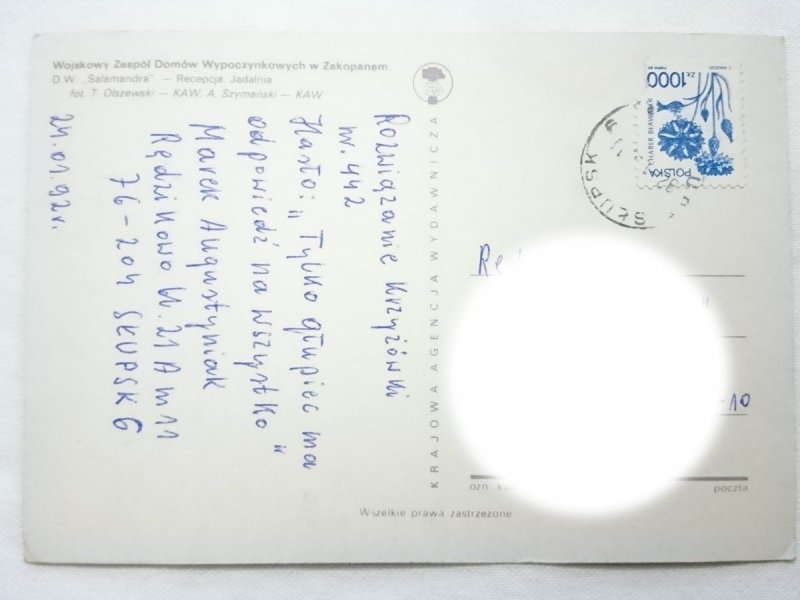 Wojskowy Zespół Domów Wypoczynkowych w Zakopanem.
D.W. „Salamandra” — Recepcja. Jadalnia
fot. T. Olszewski — KAW. A. Szymański — KAW
Rozwiązanie krzyżówki
nr. 442
Hasło: „Tylko głupiec ma
odpowiedź na wszystko”
Marek Augustyniak
Rędzikowo bl. 21A m 11
76-204 SŁUPSK 6
24.01.92r.
KRAJOWA AGENCJA WYDAWNICZA
ZŁ 1000
CHABER BŁAWATEK
POLSKA
SŁUPSK
Re
-10
poczta
Wszelkie prawa zastrzeżone